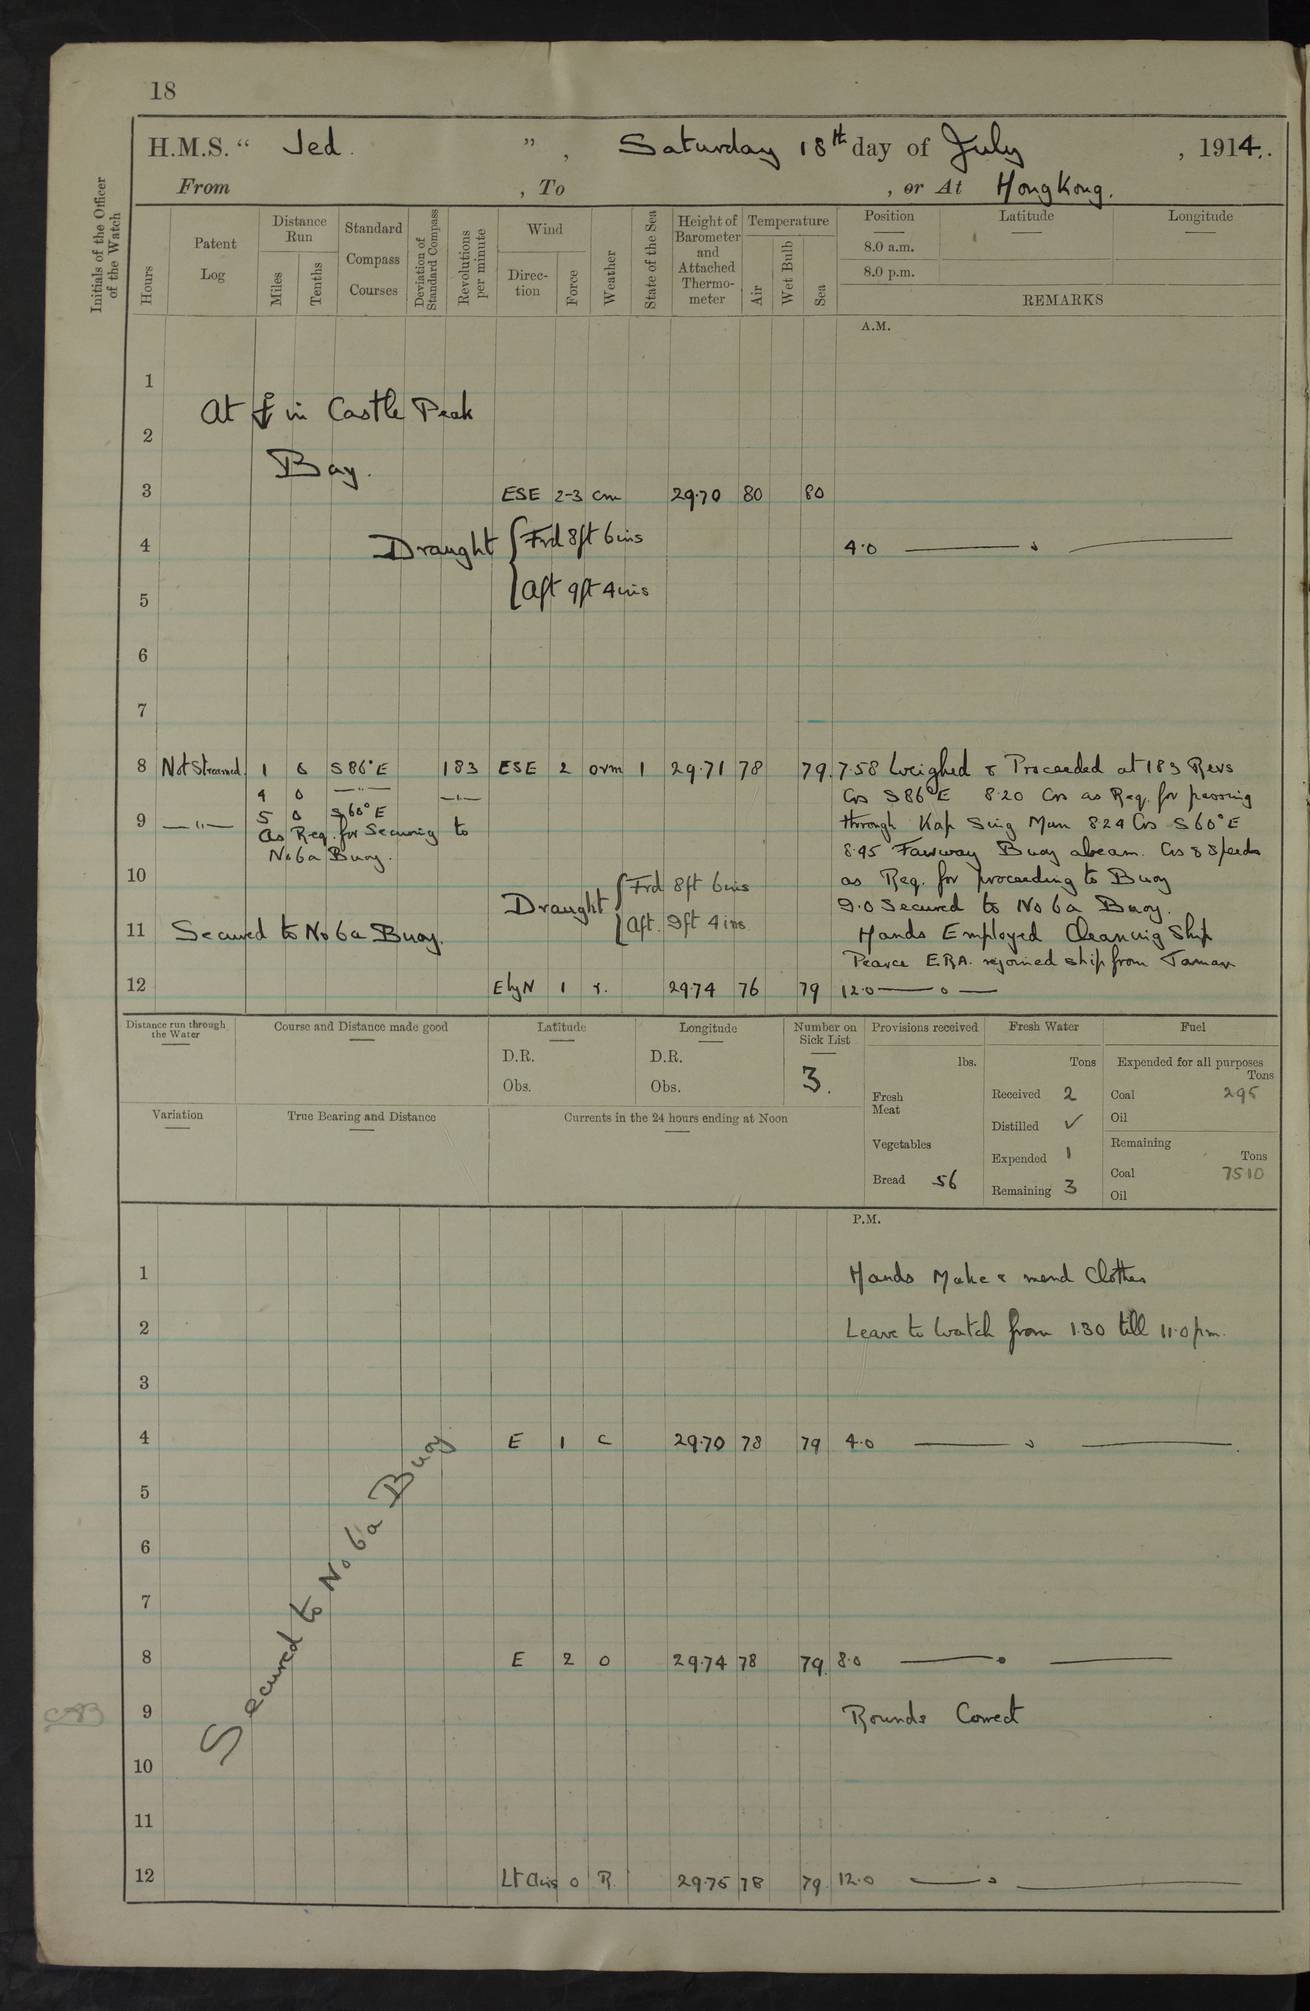 18
H.M.S. “ Jed. ” , Saturday 18th day of July , 1914.
From , To , or At Hong Kong.
Initials of the Officer of the Watch
Hours
Patent Log
Distance Run
Miles
Tenths
Standard Compass Courses
Deviation of Standard Compass
Revolutions per minute
Wind
Direction
Force
Weather
State of the Sea
Height of Barometer and Attached Thermometer
Temperature
Air
Wet Bulb
Sea
Position Latitude Longitude
8.0 a.m.
8.0 p.m.
REMARKS
A.M.
1
At ⚓ in Castle Peak
2
Bay.
3 ESE 2-3 cm 29.70 80 80
4 Draught { Frd 8ft 6ins 4.0
5 Aft 9ft 4ins
6
7
8 Not Streamed 1 6 S86°E 183 ESE 2 orm 1 29.71 78 79. 7.58 Weighed & Proceeded at 183 Revs
4 0 —"— —"— Crs S86°E 8.20 Crs as Req. for passing
5 0 S60°E
9 —"— through Kap Sing Mun 8.24 Crs S60°E
As Req. for Securing to
No 6a Buoy. 8.45 Fairway Buoy abeam. Crs & Speeds
10 as Req. for proceeding to Buoy
Draught { Frd 8ft 6ins
9.0 Secured to No 6a Buoy.
Aft. 9ft 4ins
11 Secured to No 6a Buoy. Hands Employed Cleaning Ship
Pearce E.R.A. rejoined ship from Tamar
12 E by N 1 r. 29.74 76 79 12.0
Distance run through the Water
Course and Distance made good
Latitude
D.R.
Obs.
Longitude
D.R.
Obs.
Number on Sick List
3.
Variation
True Bearing and Distance
Currents in the 24 hours ending at Noon
Provisions received
lbs.
Fresh Meat
Vegetables
Bread 56
Fresh Water
Tons
Received 2
Distilled ✓
Expended 1
Remaining 3
Fuel
Expended for all purposes
Tons
Coal 295
Oil
Remaining
Tons
Coal 7510
Oil
P.M.
1 Hands Make & mend Clothes
2 Leave to Watch from 1.30 till 11.0 pm.
3
4 E 1 c 29.70 78 79 4.0
5
6
7
Secured to No 6a Buoy
8 E 2 o 29.74 78 79. 8.0
9 Rounds Correct
10
11
12 Lt Airs 0 R. 29.75 78 79. 12.0